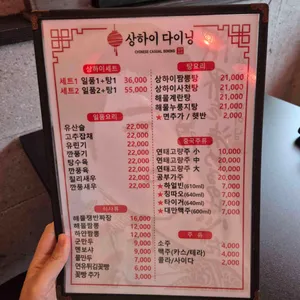 상하이 다이닝
CHINESE CASUAL DINING
상하이세트
세트1 일품1+탕1 36,000
세트2 일품2+탕1 55,000
일품요리
유산슬
고추잡채
유린기
깐풍기
탕수육
깐풍육
칠리새우
깐풍새우
식사류
해물쟁반짜장 16,000
해물짬뽕
하얀짬뽕
군만두
멘보샤
물만두
연유튀김꽃빵
꽃빵 추가 3,000
탕요리
상하이짬뽕탕 21,000
상하이사천탕 21,000
해물계란탕 21,000
해물누룽지탕
★ 면추가 / 햇반 2,000
중국주류
연태고량주 小 10,000
연태고량주 中 20,000
연태고량주 大 40,000
공부가주 20,000
★ 하얼빈(610ml) 7,000
★ 칭따오(640ml) 7,000
★ 타이거(640ml) 7,000
★ 대만맥주(600ml) 7,000
주 음
소주 4,000
맥주(카스/테라) 4,000
콜라/사이다 2,000